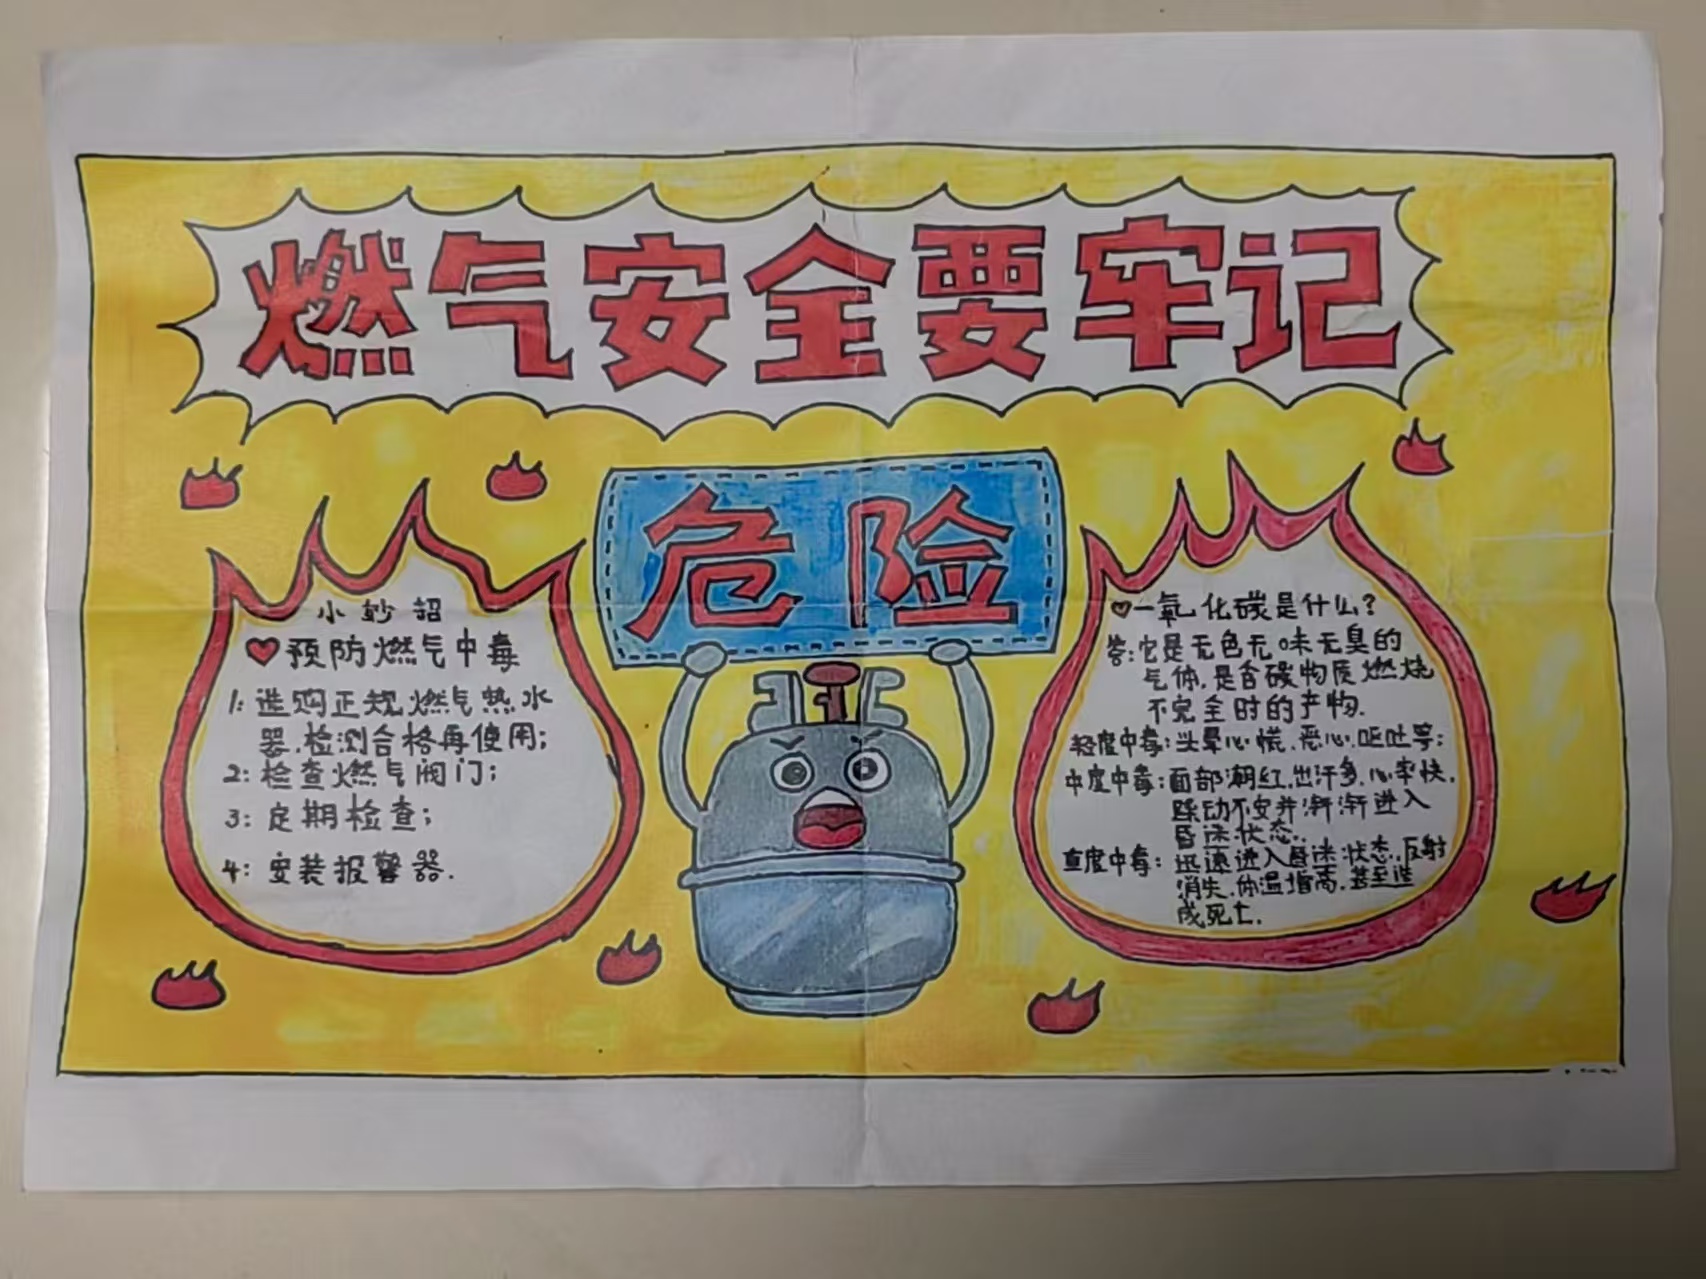 燃气安全要牢记
危险
小妙招
预防燃气中毒
1:选购正规燃气热水
器.检测合格再使用;
2:检查燃气阀门;
3:定期检查;
4:安装报警器.
一氧化碳是什么?
答:它是无色无味无臭的
气体.是含碳物质燃烧
不完全时的产物.
轻度中毒:头晕心慌.恶心.呕吐等;
中度中毒:面部潮红.出汗多.心率快.
躁动不安并渐渐进入
昏迷状态.
重度中毒:迅速进入昏迷状态.反射
消失.体温增高.甚至造
成死亡.